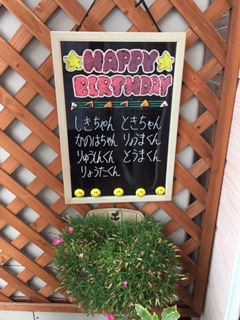 HAPPY
BIRTHDAY
しきちゃん ときちゃん
かのはちゃん りょうまくん
りゅうしんくん とうまくん
りょうたくん